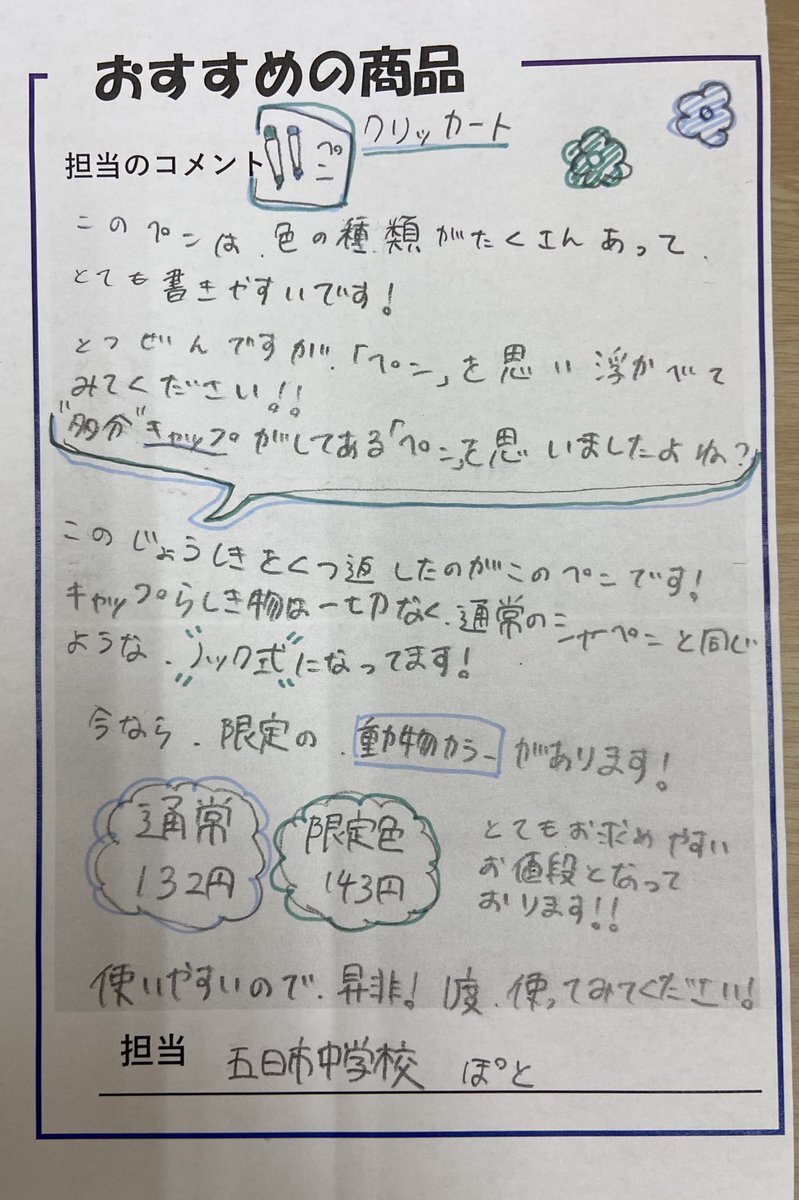 おすすめの商品
担当のコメント
ペン
クリッカート
このペンは、色の種類がたくさんあって、
とても書きやすいです!
とつぜんですが、「ペン」を思い浮かべて
みてください!!
"多分"キャップがしてある「ペン」を思いましたよね?
このじょうしきをくつ返したのがこのペンです!
キャップらしき物は一切なく、通常のシャーペンと同じ
ような、ノック式になってます!
今なら、限定の、動物カラーがあります!
通常
132円
限定色
143円
とてもお求めやすい
お値段となって
おります!!
使いやすいので、昇非!1度、使ってみてください!
担当 五日市中学校 ぽと